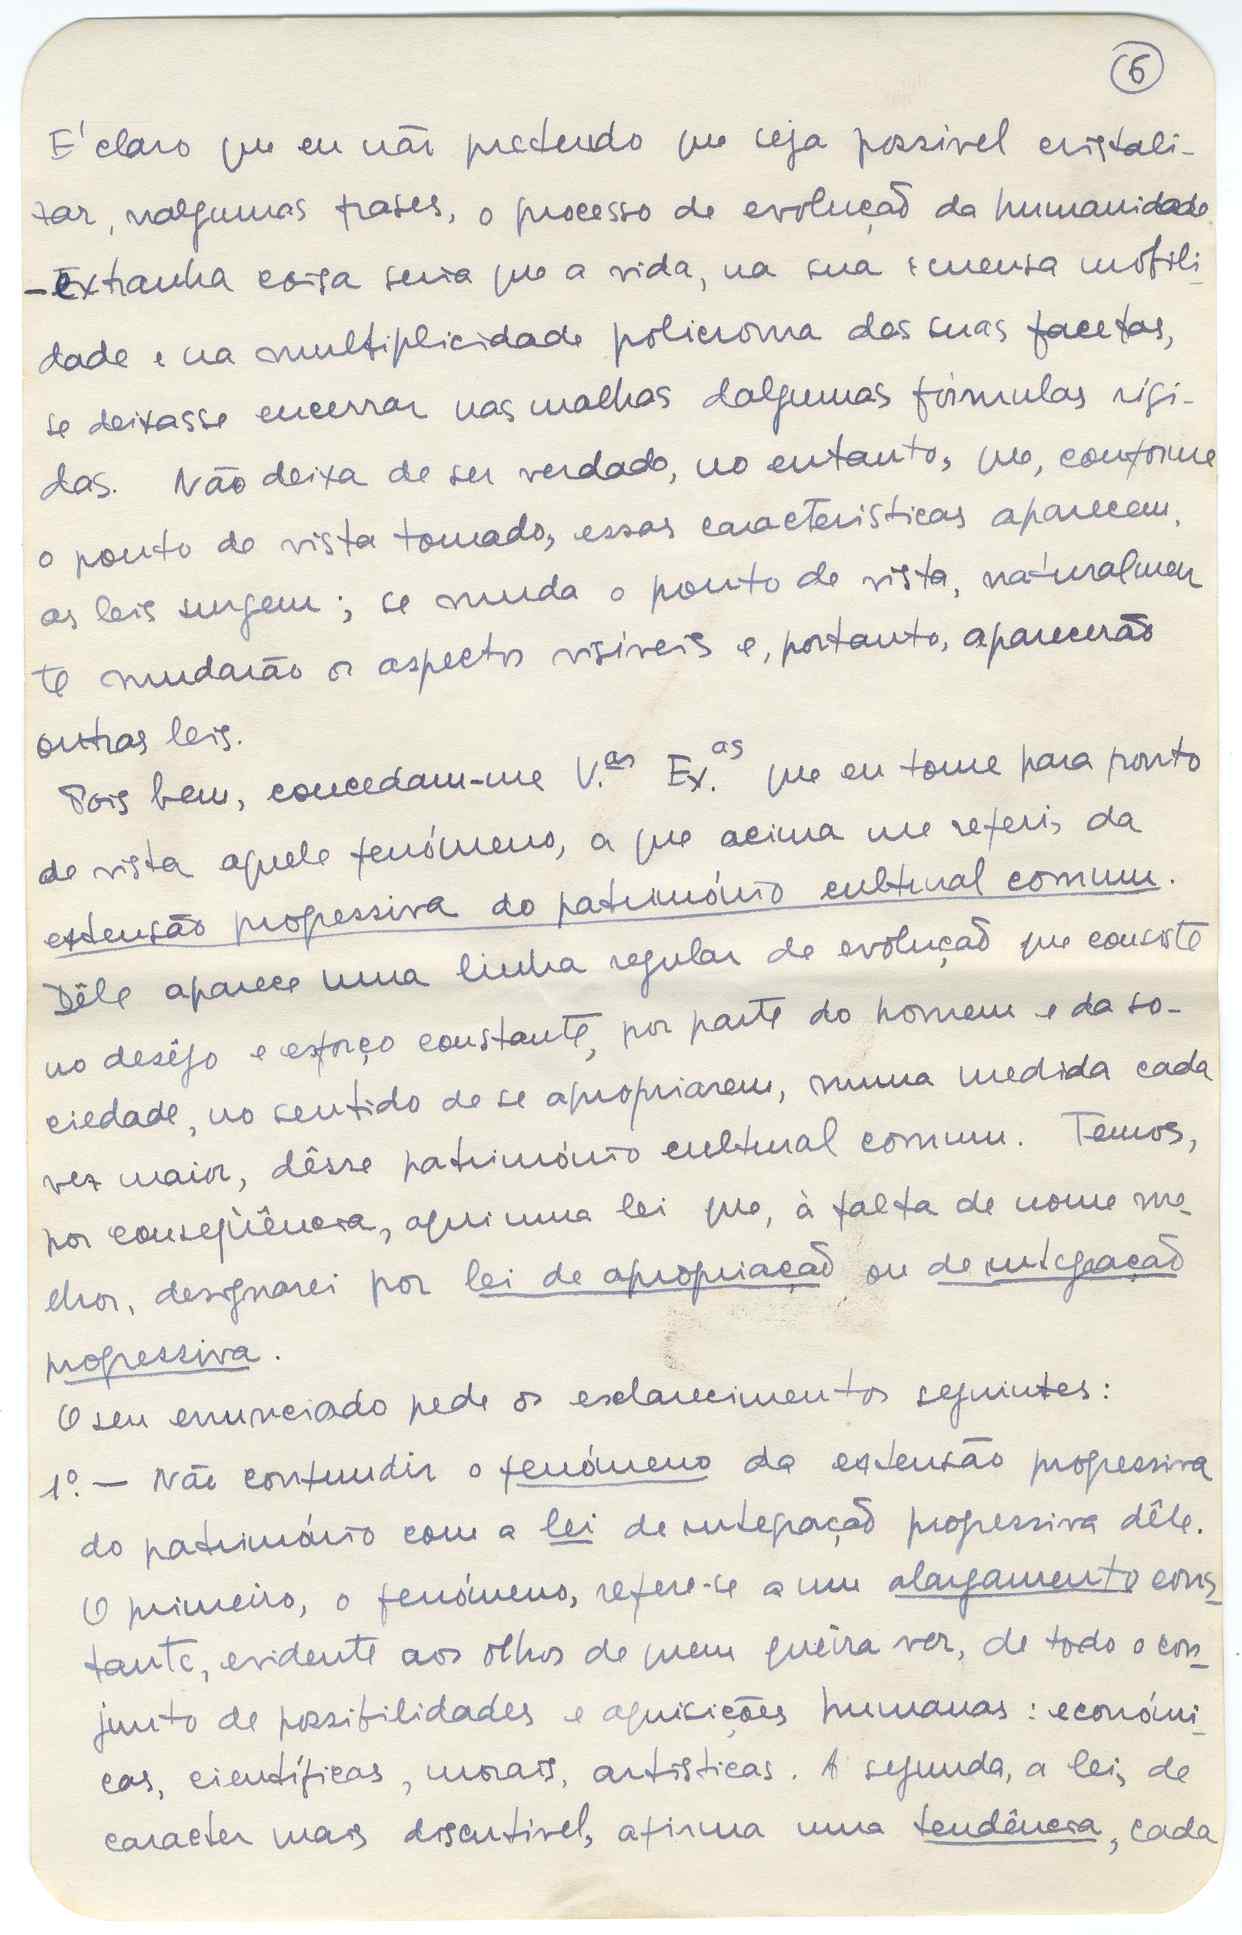 6
É claro que eu não pretendo que seja possível cristali-
zar, nalgumas frases, o processo de evolução da humanidade
- Extranha coisa seria que a vida, na sua imensa mobili-
dade e na multiplicidade policroma das suas facetas,
se deixasse encerrar nas malhas dalgumas fórmulas rígi-
das. Não deixa de ser verdade, no entanto, que, conforme
o ponto de vista tomado, essas características aparecem,
as leis surgem; se muda o ponto de vista, naturalmen
te mudarão os aspectos visíveis e, portanto, aparecerão
outras leis.
Pois bem, concedam-me V.as Ex.as que eu tome para ponto
de vista aquele fenómeno, a que acima me referi, da
extensão progressiva do património cultural comum.
Dêle aparece uma linha regular de evolução que consiste
no desêjo e esforço constante, por parte do homem e da so-
ciedade, no sentido de se apropriarem, numa medida cada
vez maior, dêsse património cultural comum. Temos,
por conseqüência, aqui uma lei que, à falta de nome me-
lhor, designarei por lei de apropriação ou de integração
progressiva.
O seu enunciado pede os esclarecimentos seguintes:
1º. — Não confundir o fenómeno da extensão progressiva
do património com a lei de integração progressiva dêle.
O primeiro, o fenómeno, refere-se a um alargamento cons-
tante, evidente aos olhos de quem queira ver, de todo o con-
junto de possibilidades e aquisições humanas: económi-
cas, científicas, morais, artísticas. A segunda, a lei, de
caracter mais discutível, afirma uma tendência, cada